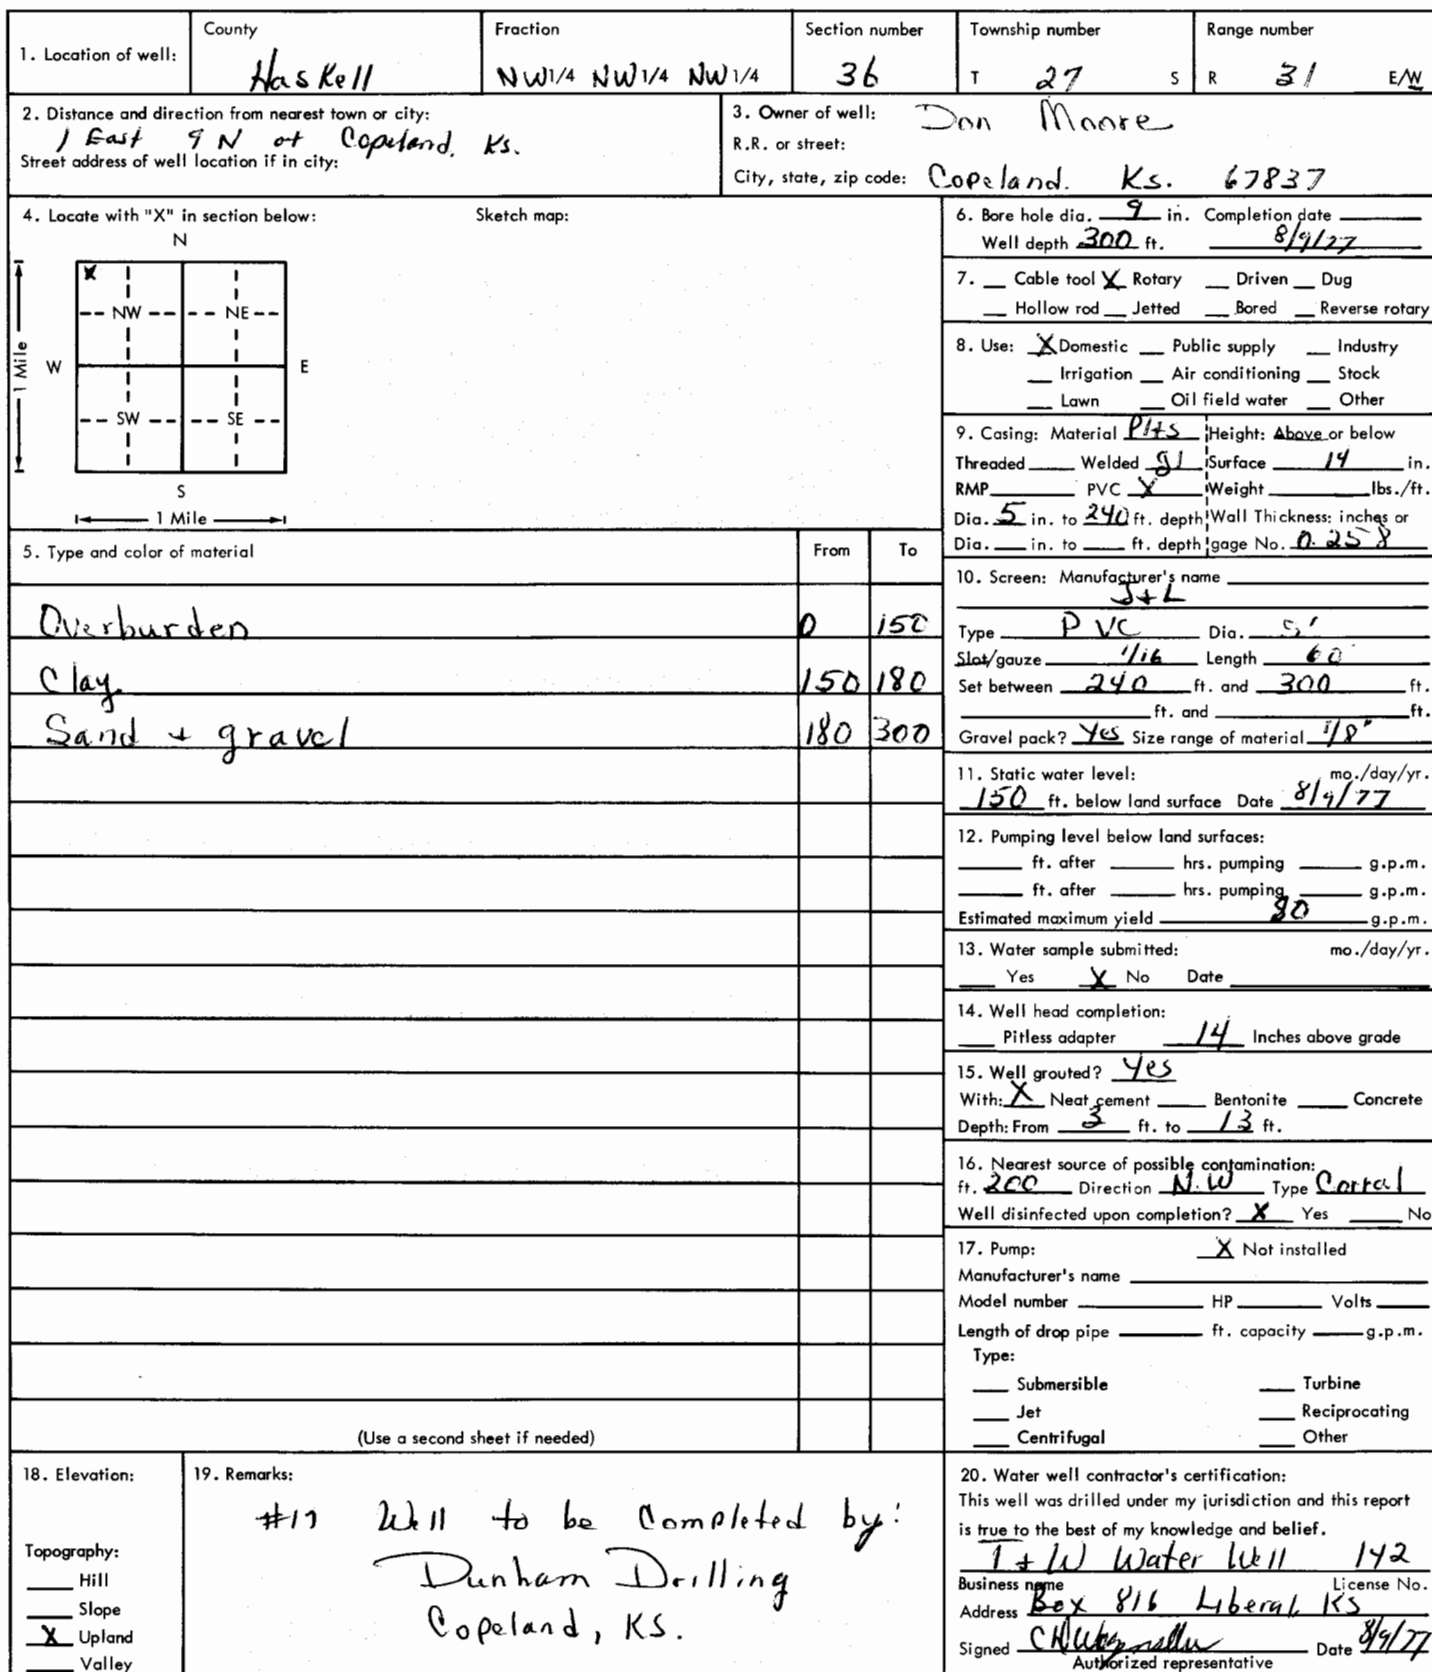 County Fraction Section number Township number Range number
1. Location of well: Haskell NW1/4 NW1/4 NW1/4 36 T 27 S R 31 E/W
2. Distance and direction from nearest town or city:
1 East 9 N of Copeland, Ks.
Street address of well location if in city:
3. Owner of well: Don Moore
R.R. or street:
City, state, zip code: Copeland. Ks. 67837
4. Locate with "X" in section below: Sketch map:
N
X
NW NE
W E
1 Mile
SW SE
S
1 Mile
5. Type and color of material From To
Overburden 0 150
Clay 150 180
Sand + gravel 180 300
(Use a second sheet if needed)
6. Bore hole dia. 9 in. Completion date
Well depth 300 ft. 8/9/77
7. Cable tool X Rotary Driven Dug
Hollow rod Jetted Bored Reverse rotary
8. Use: X Domestic Public supply Industry
Irrigation Air conditioning Stock
Lawn Oil field water Other
9. Casing: Material Height: Above or below
Threaded Welded gl Surface 14 in.
RMP PVC X Weight lbs./ft.
Dia. 5 in. to 240 ft. depth Wall Thickness: inches or
Dia. in. to ft. depth gage No. 0.258
10. Screen: Manufacturer's name
J+L
Type PVC Dia. 5"
Slot/gauze 1/16 Length 60
Set between 240 ft. and 300 ft.
ft. and ft.
Gravel pack? Yes Size range of material 1/8"
11. Static water level: mo./day/yr.
150 ft. below land surface Date 8/9/77
12. Pumping level below land surfaces:
ft. after hrs. pumping g.p.m.
ft. after hrs. pumping g.p.m.
Estimated maximum yield 80 g.p.m.
13. Water sample submitted: mo./day/yr.
Yes X No Date
14. Well head completion:
Pitless adapter 14 Inches above grade
15. Well grouted? Yes
With: X Neat cement Bentonite Concrete
Depth: From 3 ft. to 13 ft.
16. Nearest source of possible contamination:
ft. 200 Direction N.W Type Corral
Well disinfected upon completion? X Yes No
17. Pump: X Not installed
Manufacturer's name
Model number HP Volts
Length of drop pipe ft. capacity g.p.m.
Type:
Submersible Turbine
Jet Reciprocating
Centrifugal Other
18. Elevation:
Topography:
Hill
Slope
X Upland
Valley
19. Remarks:
#17 Well to be Completed by:
Dunham Drilling
Copeland, KS.
20. Water well contractor's certification:
This well was drilled under my jurisdiction and this report
is true to the best of my knowledge and belief.
T + W Water Well 142
Business name License No.
Address Box 816 Liberal, KS
Signed Date 8/9/77
Authorized representative